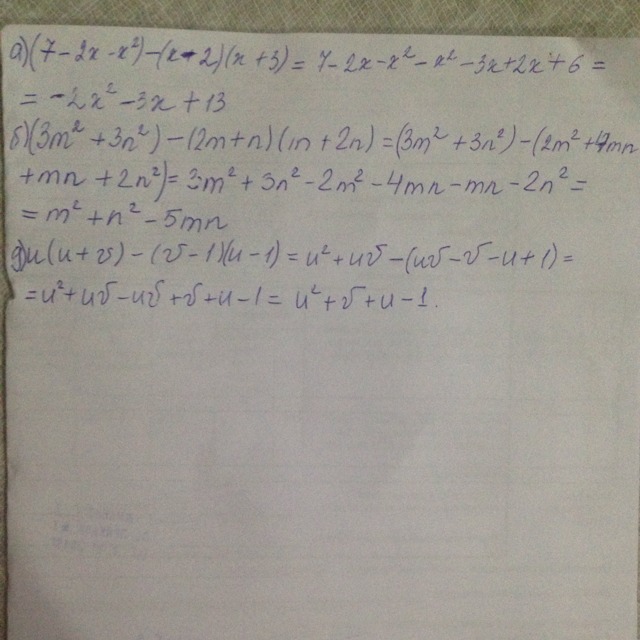 а)(7-2x-x²)-(x-2)(x+3)=7-2x-x²-x²-3x+2x+6=
=-2x²-3x+13
б)(3m²+3n²)-(2m+n)(m+2n)=(3m²+3n²)-(2m²+4mn
+mn+2n²)=3m²+3n²-2m²-4mn-mn-2n²=
=m²+n²-5mn
в)u(u+v)-(v-1)(u-1)=u²+uv-(uv-v-u+1)=
=u²+uv-uv+v+u-1=u²+v+u-1.